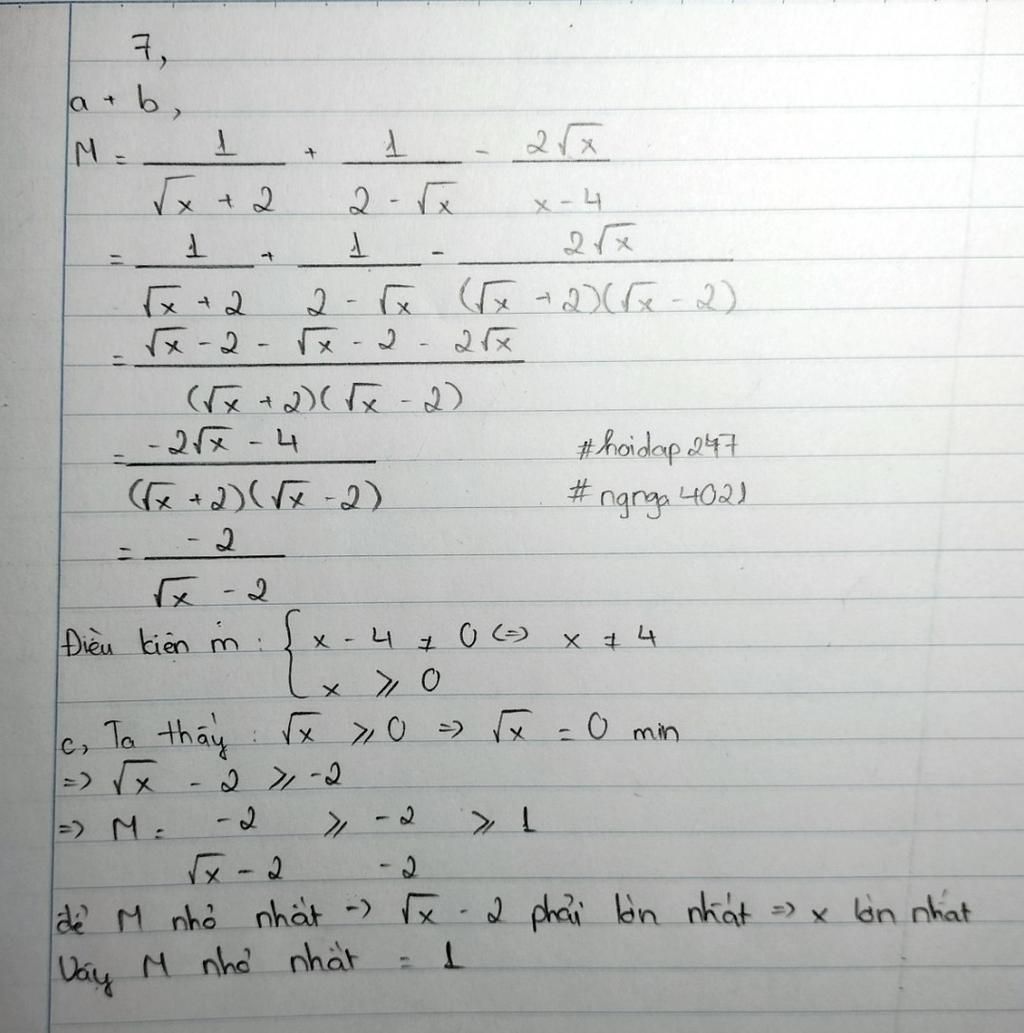 7,
a + b,
M = 1/(√x + 2) + 1/(2 - √x) - 2√x/(x - 4)
= 1/(√x + 2) + 1/(2 - √x) - 2√x/((√x + 2)(√x - 2))
= (√x - 2 - √x - 2 - 2√x)/((√x + 2)(√x - 2))
= (-2√x - 4)/((√x + 2)(√x - 2))
#hoidap247
#ngnga4021
= -2/(√x - 2)
Điều kiện m : { x - 4 ≠ 0 <=> x ≠ 4
x ⩾ 0
c, Ta thấy : √x ⩾ 0 => √x = 0 min
=> √x - 2 ⩾ -2
=> M = -2/(√x - 2) ⩾ -2/-2 ⩾ 1
để M nhỏ nhất -> √x - 2 phải lớn nhất => x lớn nhất
Vậy M nhỏ nhất = 1